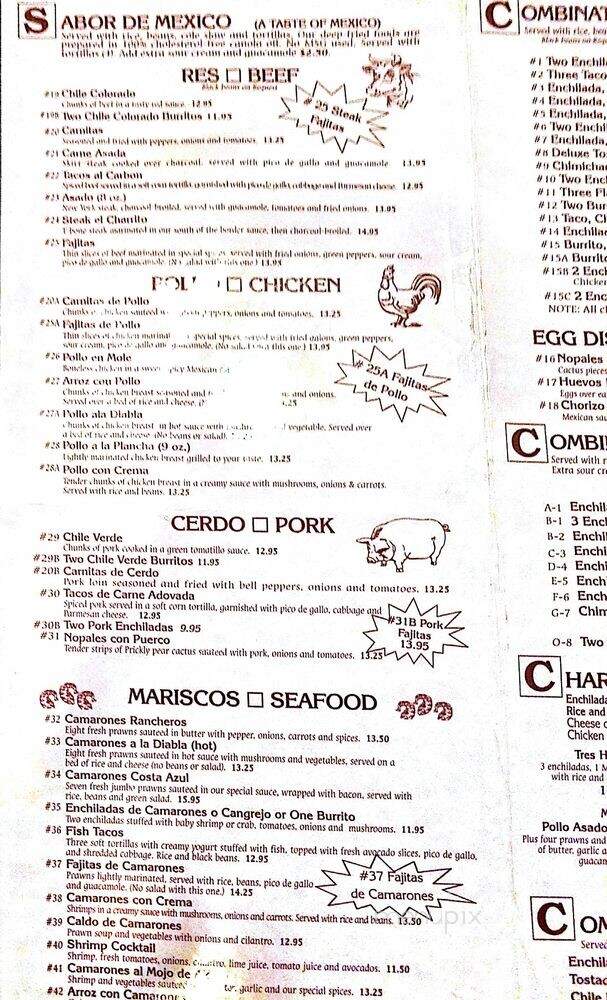 SABOR DE MEXICO (A TASTE OF MEXICO)
Served with rice, beans, cole slaw and tortillas. Our deep fried foods are
prepared in 100% cholesterol free canola oil. No MSG used. Served with
tortillas (3) Add extra sour cream and guacamole $2.50.
RES □ BEEF
Black beans on Request
#19 Chile Colorado
Chunks of beef in a tasty red sauce. 12.95
#19B Two Chile Colorado Burritos 11.95
#20 Carnitas
Seasoned and fried with peppers, onions and tomatoes. 13.25
#21 Carne Asada
Skirt steak cooked over charcoal, served with pico de gallo and guacamole. 13.95
#22 Tacos al Carbon
Spiced beef served in a soft corn tortilla, garnished with pico de gallo, cabbage and Parmesan cheese. 12.95
#23 Asado (8 oz.)
New York steak, charcoal broiled, served with guacamole, tomatoes and fried onions. 13.95
#24 Steak el Charrito
T-bone steak marinated in our south of the border sauce, then charcoal-broiled. 14.95
#25 Fajitas
Thin slices of beef marinated in special spices, served with fried onions, green peppers, sour cream,
pico de gallo and guacamole. (No salad with this one.) 13.95
# 25 Steak
Fajitas
□ CHICKEN
#20A Carnitas de Pollo
Chunks chicken sauteed peppers, onions and tomatoes. 13.25
#25A Fajitas de Pollo
Thin slices of chicken special spices, served with fried onions, green peppers,
sour cream, pico de gallo and guacamole. (No salad with this one.) 13.95
#26 Pollo en Mole
Boneless chicken in a sweet spicy Mexican
#27 Arroz con Pollo
Chunks of chicken breast seasoned and and onions.
Served over a bed of rice and cheese.
#27A Pollo ala Diabla
Chunks of chicken breast in hot sauce with vegetable. Served over
a bed of rice and cheese (No beans or salad).
#28 Pollo a la Plancha (9 oz.)
Lightly marinated chicken breast grilled to your taste. 13.25
#28A Pollo con Crema
Tender chunks of chicken breast in a creamy sauce with mushrooms, onions & carrots.
Served with rice and beans. 13.25
# 25A Fajitas
de Pollo
CERDO □ PORK
#29 Chile Verde
Chunks of pork cooked in a green tomatillo sauce. 12.95
#29B Two Chile Verde Burritos 11.95
#20B Carnitas de Cerdo
Pork loin seasoned and fried with bell peppers, onions and tomatoes. 13.25
#30 Tacos de Carne Adovada
Spiced pork served in a soft corn tortilla, garnished with pico de gallo, cabbage and
Parmesan cheese. 12.95
#30B Two Pork Enchiladas 9.95
#31 Nopales con Puerco
Tender strips of Prickly pear cactus sauteed with pork, onions and tomatoes. 13.25
#31B Pork
Fajitas
13.95
MARISCOS □ SEAFOOD
#32 Camarones Rancheros
Eight fresh prawns sauteed in butter with pepper, onions, carrots and spices. 13.50
#33 Camarones a la Diabla (hot)
Eight fresh prawns sauteed in hot sauce with mushrooms and vegetables, served on a
bed of rice and cheese (no beans or salad). 13.25
#34 Camarones Costa Azul
Seven fresh jumbo prawns sauteed in our special sauce, wrapped with bacon, served with
rice, beans and green salad. 15.95
#35 Enchiladas de Camarones o Cangrejo or One Burrito
Two enchiladas stuffed with baby shrimp or crab, tomatoes, onions and mushrooms. 11.95
#36 Fish Tacos
Three soft tortillas with creamy yogurt stuffed with fish, topped with fresh avocado slices, pico de gallo,
and shredded cabbage. Rice and black beans. 12.95
#37 Fajitas de Camarones
Prawns lightly marinated, served with rice, beans, pico de gallo
and guacamole. (No salad with this one.) 14.25
#37 Fajitas
de Camarones
#38 Camarones con Crema
Shrimps in a creamy sauce with mushrooms, onions and carrots. Served with rice and beans. 13.50
#39 Caldo de Camarones
Prawn soup and vegetables with onions and cilantro. 12.95
#40 Shrimp Cocktail
Shrimp, fresh tomatoes, onions, cilantro, lime juice, tomato juice and avocados. 11.50
#41 Camarones al Mojo de
Shrimp and vegetables sauteed garlic and our special spices. 13.25
#42 Arroz con Camarones
COMBINAT
Served with rice, bea
Black beans on Requ
#1 Two Enchil
#2 Three Taco
#3 Enchilada,
#4 Enchilada,
#5 Enchilada,
#6 Two Enchil
#7 Enchilada,
#8 Deluxe To
#9 Chimichan
#10 Two Enc
#11 Three Fl
#12 Two Bur
#13 Taco, Ch
#14 Enchilad
#15 Burrito,
#15A Burrito
#15B 2 Ench
Chicken
#15C 2 Enc
NOTE: All c
EGG DIS
#16 Nopales
Cactus pieces
#17 Huevos
Eggs over ea
#18 Chorizo
Mexican sau
COMBI
Served with r
Extra sour cr
A-1 Enchil
B-1 3 Enc
B-2 Enchil
C-3 Enchi
D-4 Enchi
E-5 Ench
F-6 Ench
G-7 Chim
O-8 Two
CHAR
Enchilada
Rice and
Cheese o
Chicken
Tres H
3 enchiladas, 1 M
with rice and
1
M
Pollo Asado
Plus four prawns and
of butter, garlic a
guacam
COM
Served
Enchila
Tostac
Chile